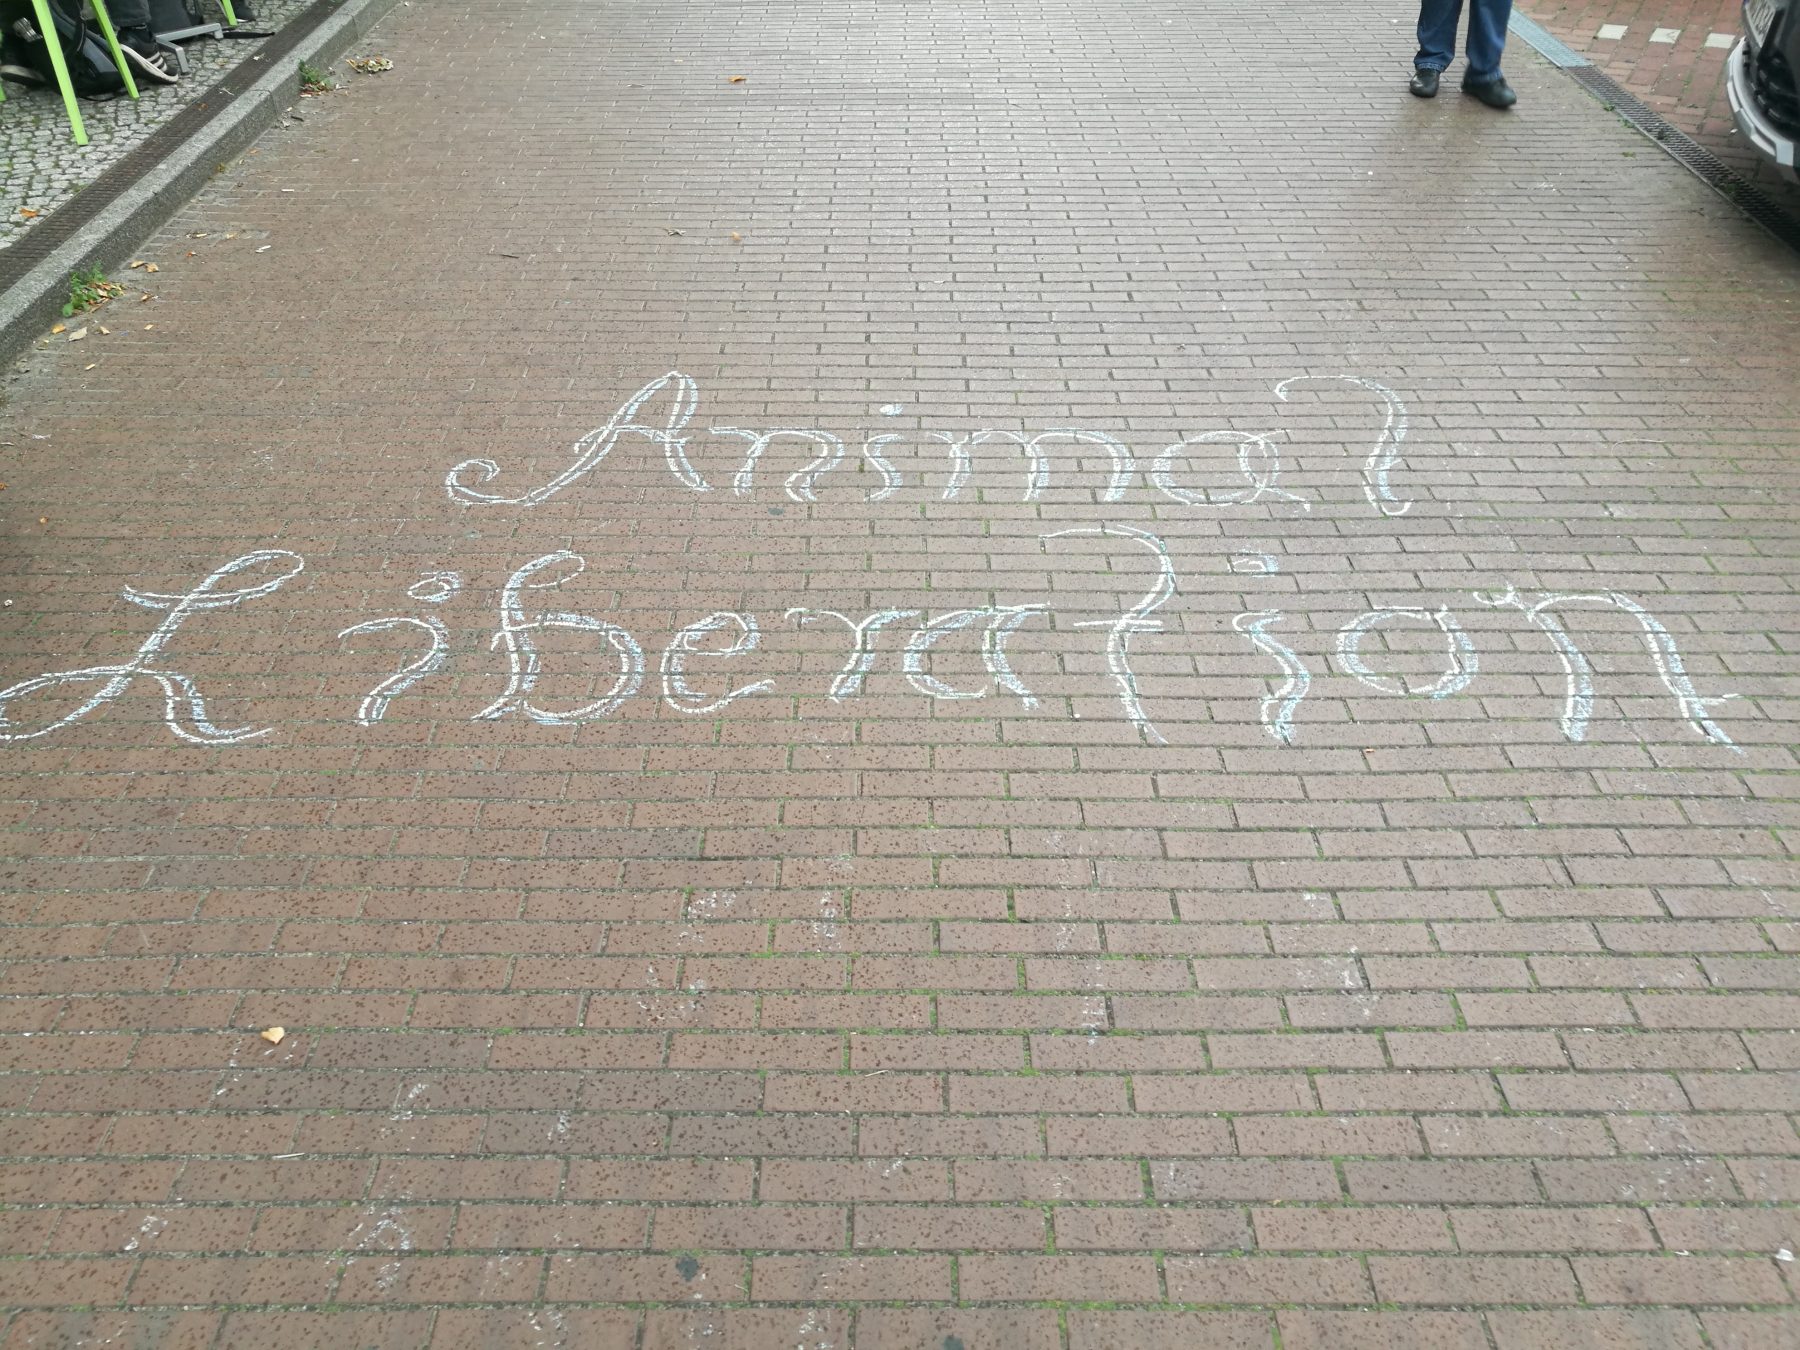 Animal
Liberation